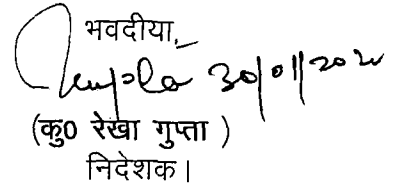 भवदीया,
30/01/202
(कु0 रेखा गुप्ता )
निदेशक।